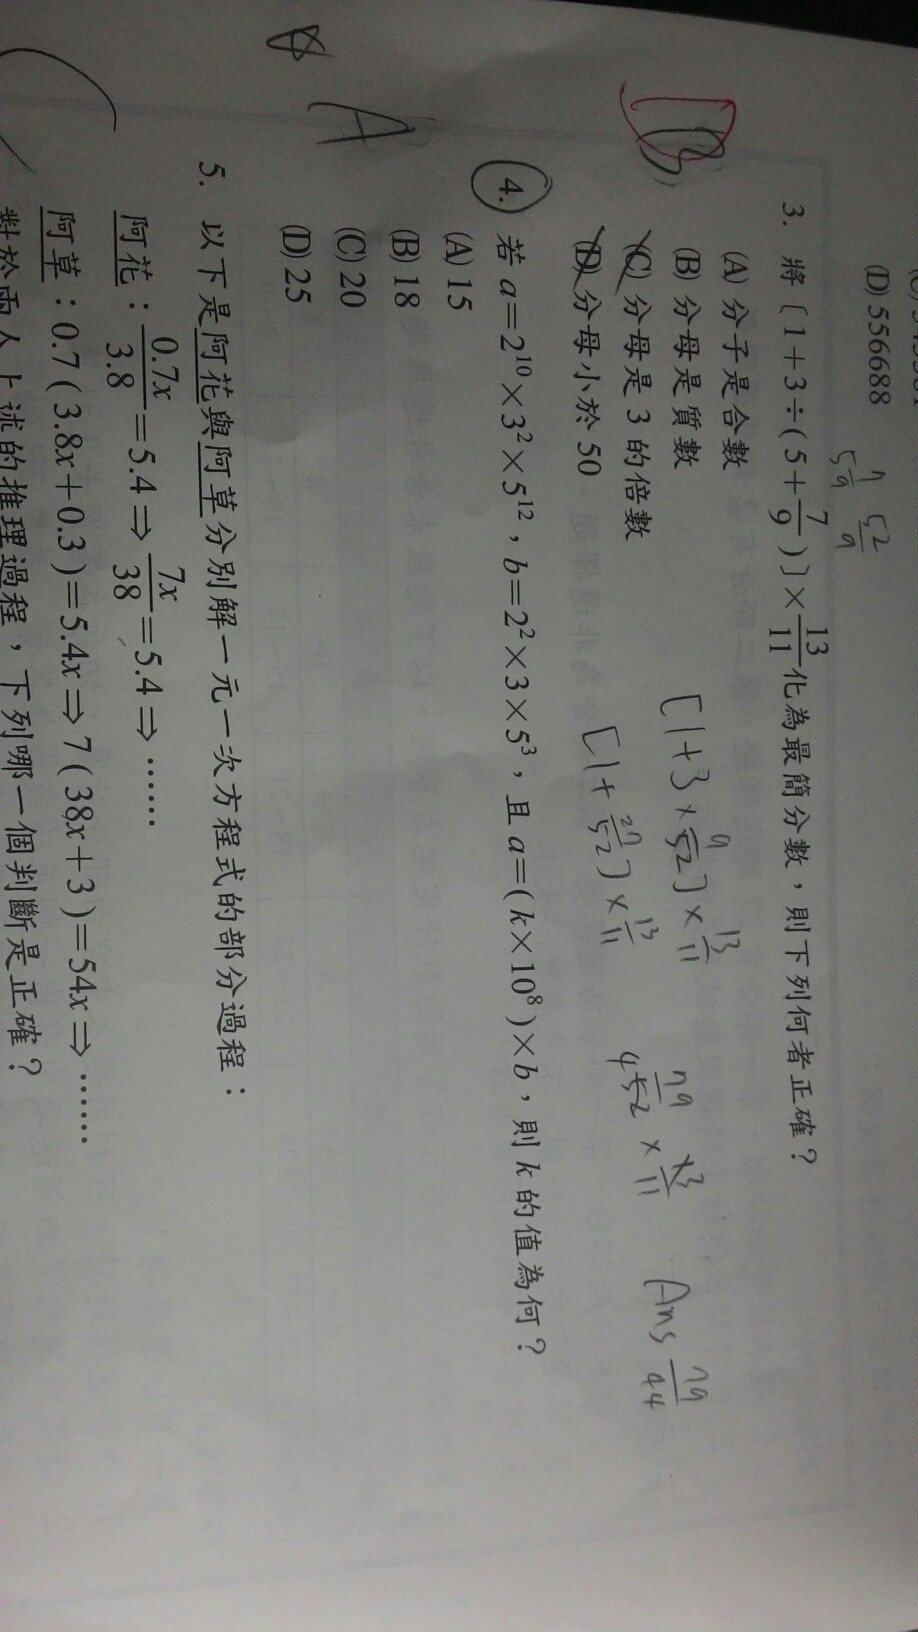 (D) 556688
7 52
5 9 9
B
3. 將〔1+3÷(5+7/9)〕×13/11化為最簡分數，則下列何者正確？
(A) 分子是合數
(B) 分母是質數
(C) 分母是 3 的倍數
(D) 分母小於 50
[1+3×9/52]×13/11
[1+27/52]×13/11
79/52×13/11
Ans 79/44
A
4. 若 a=2¹⁰×3²×5¹²，b=2²×3×5³，且 a=(k×10⁸)×b，則 k 的值為何？
(A) 15
(B) 18
(C) 20
(D) 25
5. 以下是阿花與阿草分別解一元一次方程式的部分過程：
阿花：0.7x/3.8=5.4⇒7x/38=5.4⇒……
阿草：0.7(3.8x+0.3)=5.4x⇒7(38x+3)=54x⇒……
對於兩人上述的推理過程，下列哪一個判斷是正確？